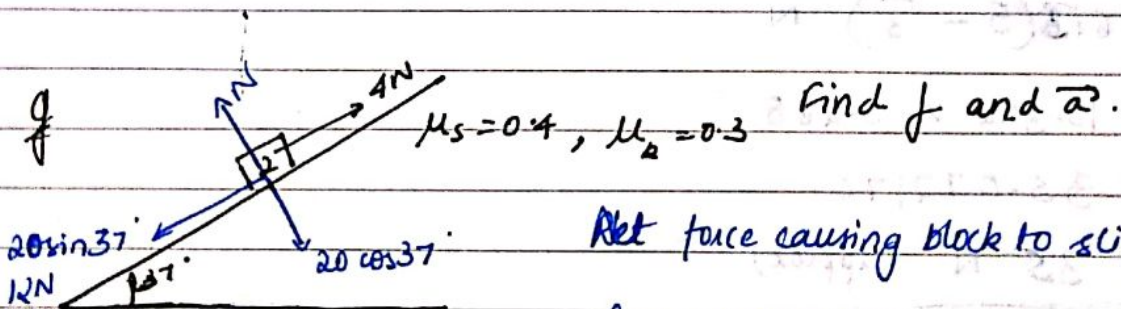 g
N
4N
μs = 0.4, μk = 0.3
Find f and a⃗.
2
20 sin 37°
12N
37°
20 cos 37°
Net force causing block to sli